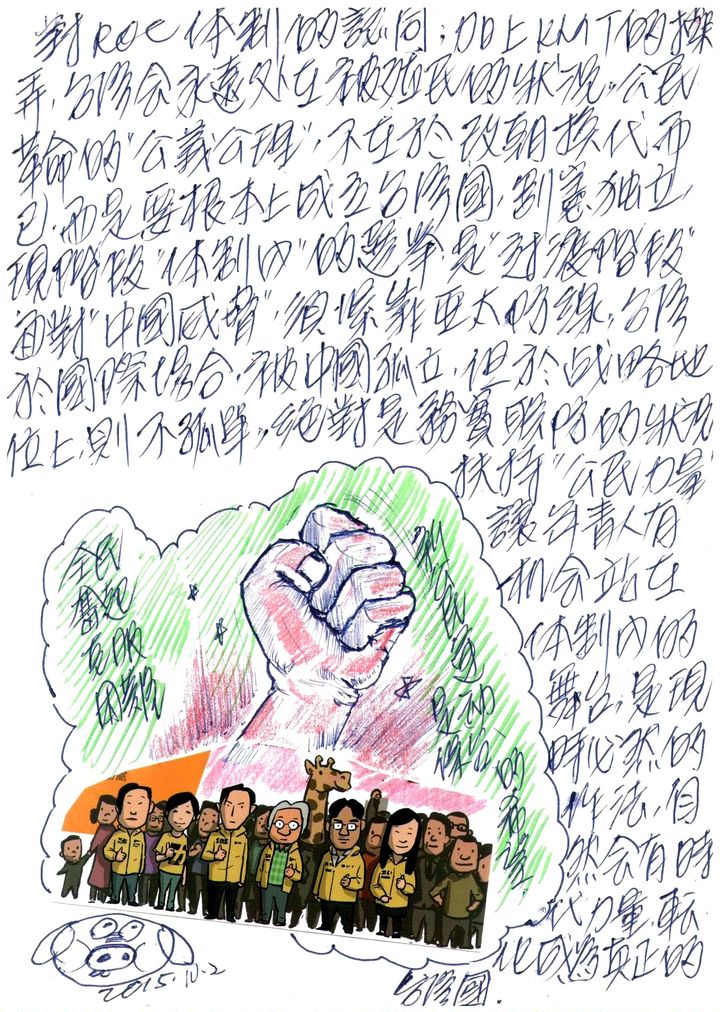 對ROC体制的認同，加上KMT的操
弄，台湾会永遠处在被殖民的狀況。公民
革命的"公義公理"，不在於改朝換代而
已，而是要根本上成立台湾國，制憲独立
現階段"体制內"的選举是"过渡階段"
面對"中國威脅"，須緊靠亞太防線，台湾
於國際場合，被中國孤立，但於战略地
位上，則不孤單，絕對是務實聯防的狀況
扶持"公民力量"
讓年青人有
机会站在
体制內的
舞台，是現
時必然的
作法，自
然会有時
代力量，転
化成為真正的
台湾國.
全民
奮起
克服
困難
新
的希望
2015.10.2